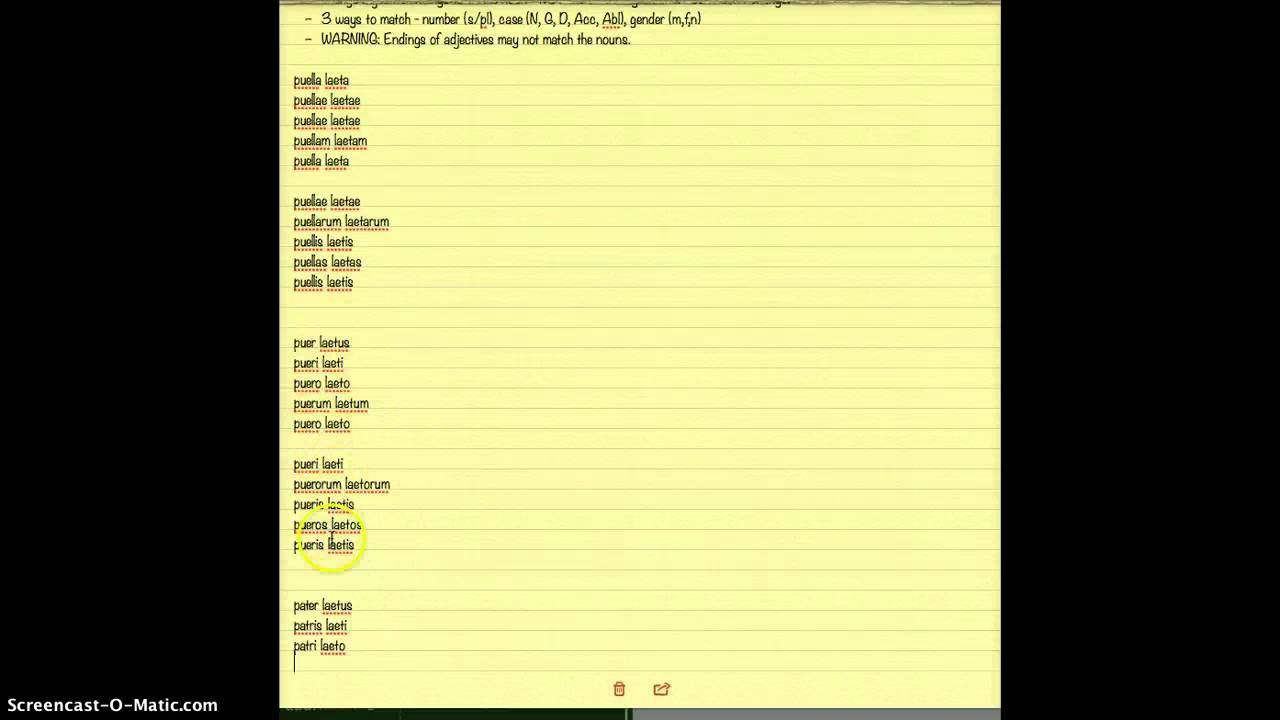 - 3 ways to match - number (s/pl), case (N, G, D, Acc, Abl), gender (m,f,n)
- WARNING: Endings of adjectives may not match the nouns.
puella laeta
puellae laetae
puellae laetae
puellam laetam
puella laeta
puellae laetae
puellarum laetarum
puellis laetis
puellas laetas
puellis laetis
puer laetus
pueri laeti
puero laeto
puerum laetum
puero laeto
pueri laeti
puerorum laetorum
pueris laetis
pueros laetos
pueris laetis
pater laetus
patris laeti
patri laeto
Screencast-O-Matic.com